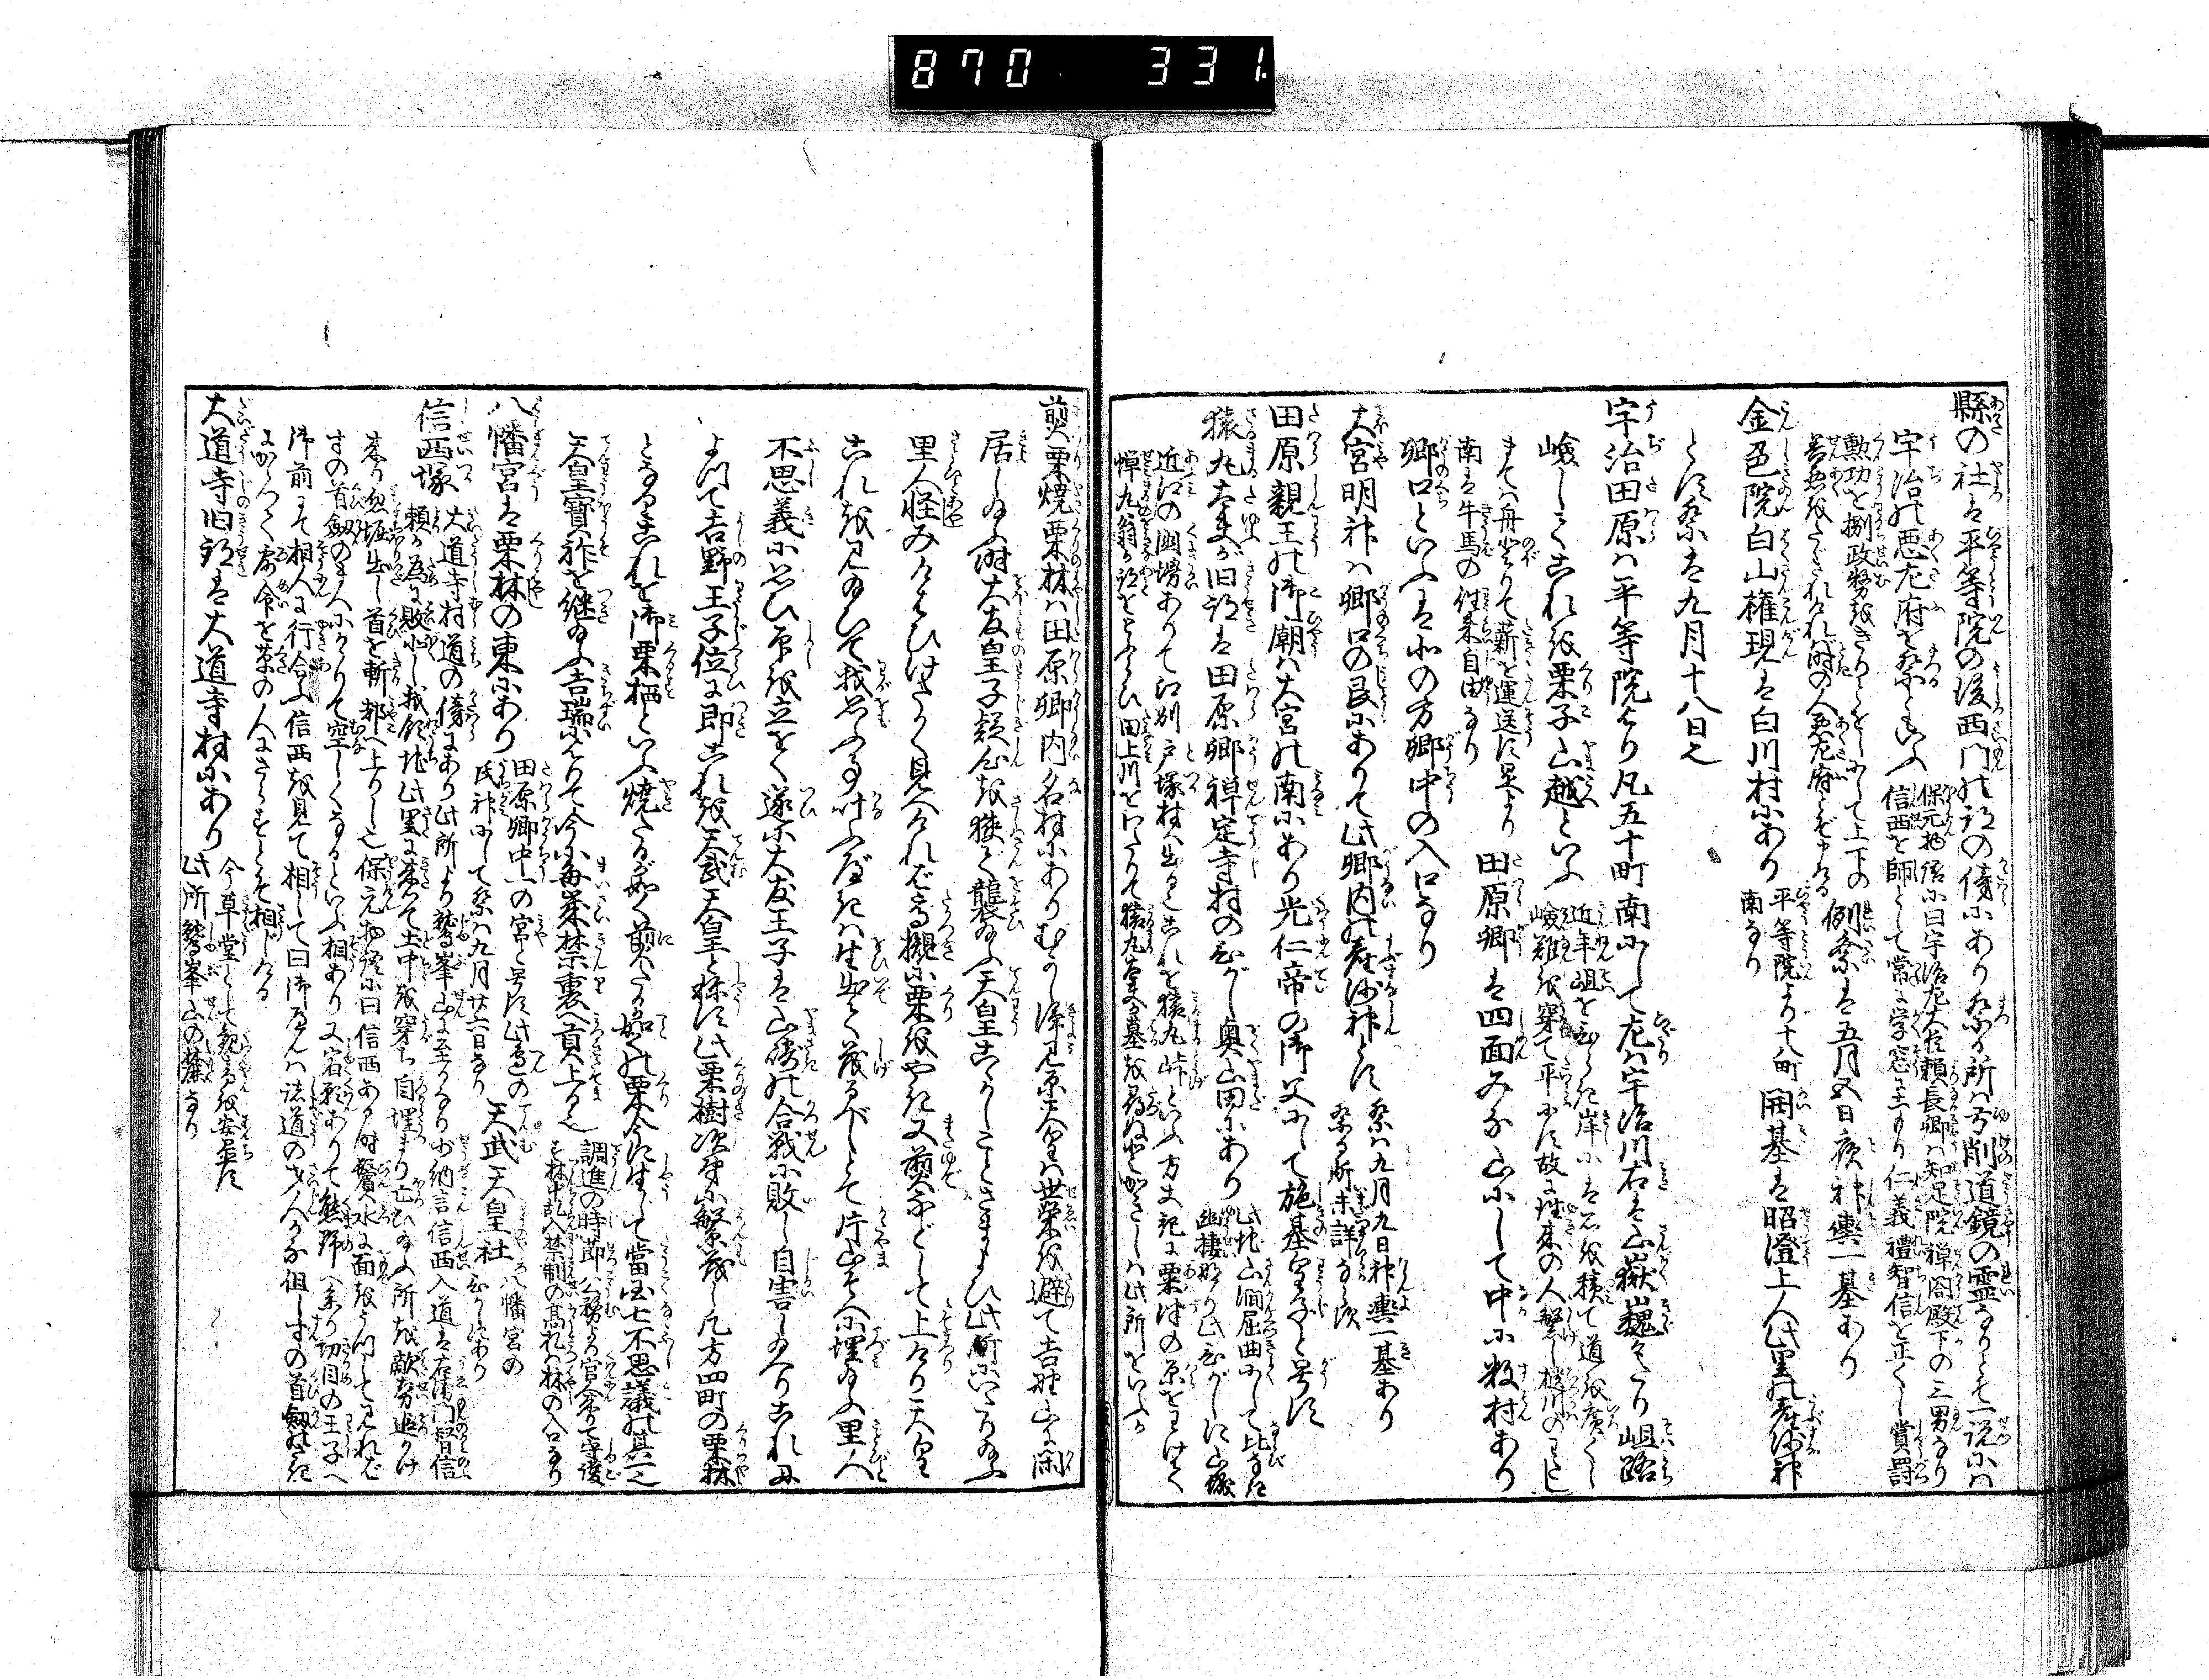 870 331
縣の社は平等院の後西門の許の傍にあり祭る所は弓削道鏡の霊なりとも一説には
宇治の悪左府を祭るともいふ
保元物語に曰宇治左大臣頼長卿は知足院禅閤殿下の三男なり
信西を師として常に学窓に
仁義禮智信を正くし賞罰
勲功を捌政務をきりとをしにして上下の
善悪をたゞされければ時の人悪左府とぞ申ける
例祭は五月五日夜神輿一基あり
金色院白山権現は白川村にあり
平等院より十八町
南なり
開基は昭澄上人此里の産沙神
とす祭は九月十八日也
宇治田原は平等院より凡五十町南にして左は宇治川右は山嶽巍々たり岨路
嶮しくこれを栗子山越といふ
近年岨をひらき岸には石を積て道を廣くし
嶮難を穿て平にす故に往来の人繁し
までは舟にのりて薪を運送す是より
南は牛馬の往来自由なり
田原郷は四面みな山にして中に数村あり
郷口といふは北の方郷中の入口なり
大宮明神は郷口の艮にありて此郷内の産沙神とす
祭は九月九日神輿一基あり
祭る所未詳ならず
田原親王の御廟は大宮の南にあり光仁帝の御父にして施基皇子と号す
猿丸太夫が旧跡は田原郷禅定寺村のひがし奥山田にあり
此地山澗屈曲にして比なき
幽棲なり此ひがしに山城
近江の國境ありて江州
猿丸峠といふ方丈記に粟津の原をわけて
蝉丸翁が跡をとふらひ田上川をわたりて猿丸太夫が墓を尋ぬとかきしは此所をいふか
煎栗焼栗林は田原郷内名村にありむかし浄見原天皇は世榮を避て吉野山に閑
居し給ふ時大友皇子疑心を狭て襲給ふ天皇こゝかしことさまよひ此所にいたり給ふ
里人怪みたまひけだかく見へければ高槻に栗をやき又煎ゆでして上けり天皇
これを見給ひて我思ふ事叶ふべきは生出て茂るべしとて片山そへに埋給ふ里人
不思義に思ひ印を立をく遂に大友王子は山崎の合戦に敗し自害し給へりこれに
よつて吉野王子位に即これを天武天皇と稱す此栗樹次第に繁茂し凡方四町の栗林
となるこれを御栗栖といふ焼たるが如く煎たる如の栗今に生じて當国七不思議の其一也
天皇寶祚を継給ふ吉瑞によりて今に毎年禁裏へ貢上る也
調進の時節は公務より官人来りて守護
す林中乱入禁制の高札は林の入口なり
八幡宮は栗林の東にあり
田原郷中一の宮と号す此邑の
氏神にして祭は九月廿六日なり
天武天皇社
八幡宮の
ひがしにあり
信西塚
大道寺村道の傍にあり此所より鷲峯山に至るなり少納言信西入道は右衛門督信
頼が為に敗北し我領地此里に来りて土中を穿ち自埋まり亡ひ給ふ所を敵勢追かけ
来り忽堀出し首を斬都へ上りし也
保元物語に曰信西ある時鬢へ水に面をうつして見れば
寸の首劔のまへにかゝりて空しくなるといふ相あり又宿願ありて熊野へ参り切目の王子へ
御前にて相人に行合ふ信西を見て相して曰御へんは諸道の才人かな但し寸の首劔のさき
にかゝつて露命を草の人にさらすとぞ相じける
大道寺旧跡は大道寺村にあり
今草堂として観音を安置す
此所鷲峯山の麓なり